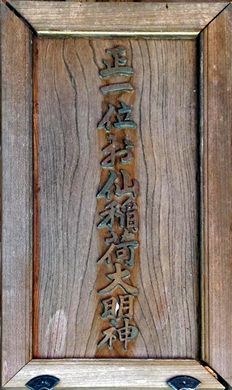 正一位お仙稲荷大明神